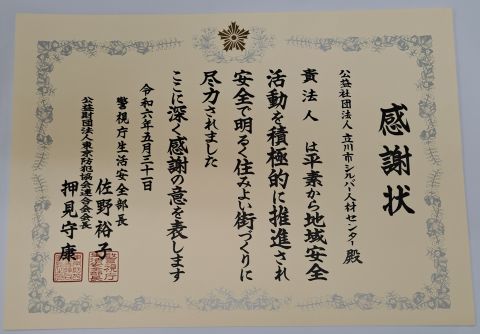 感謝状
公益社団法人 立川市シルバー人材センター 殿
貴法人は平素から地域安全
活動を積極的に推進され
安全で明るく住みよい街づくりに
尽力されました
ここに深く感謝の意を表します
令和六年五月三十一日
警視庁生活安全部長
佐野裕子
公益財団法人東京防犯協会連合会会長
押見守康